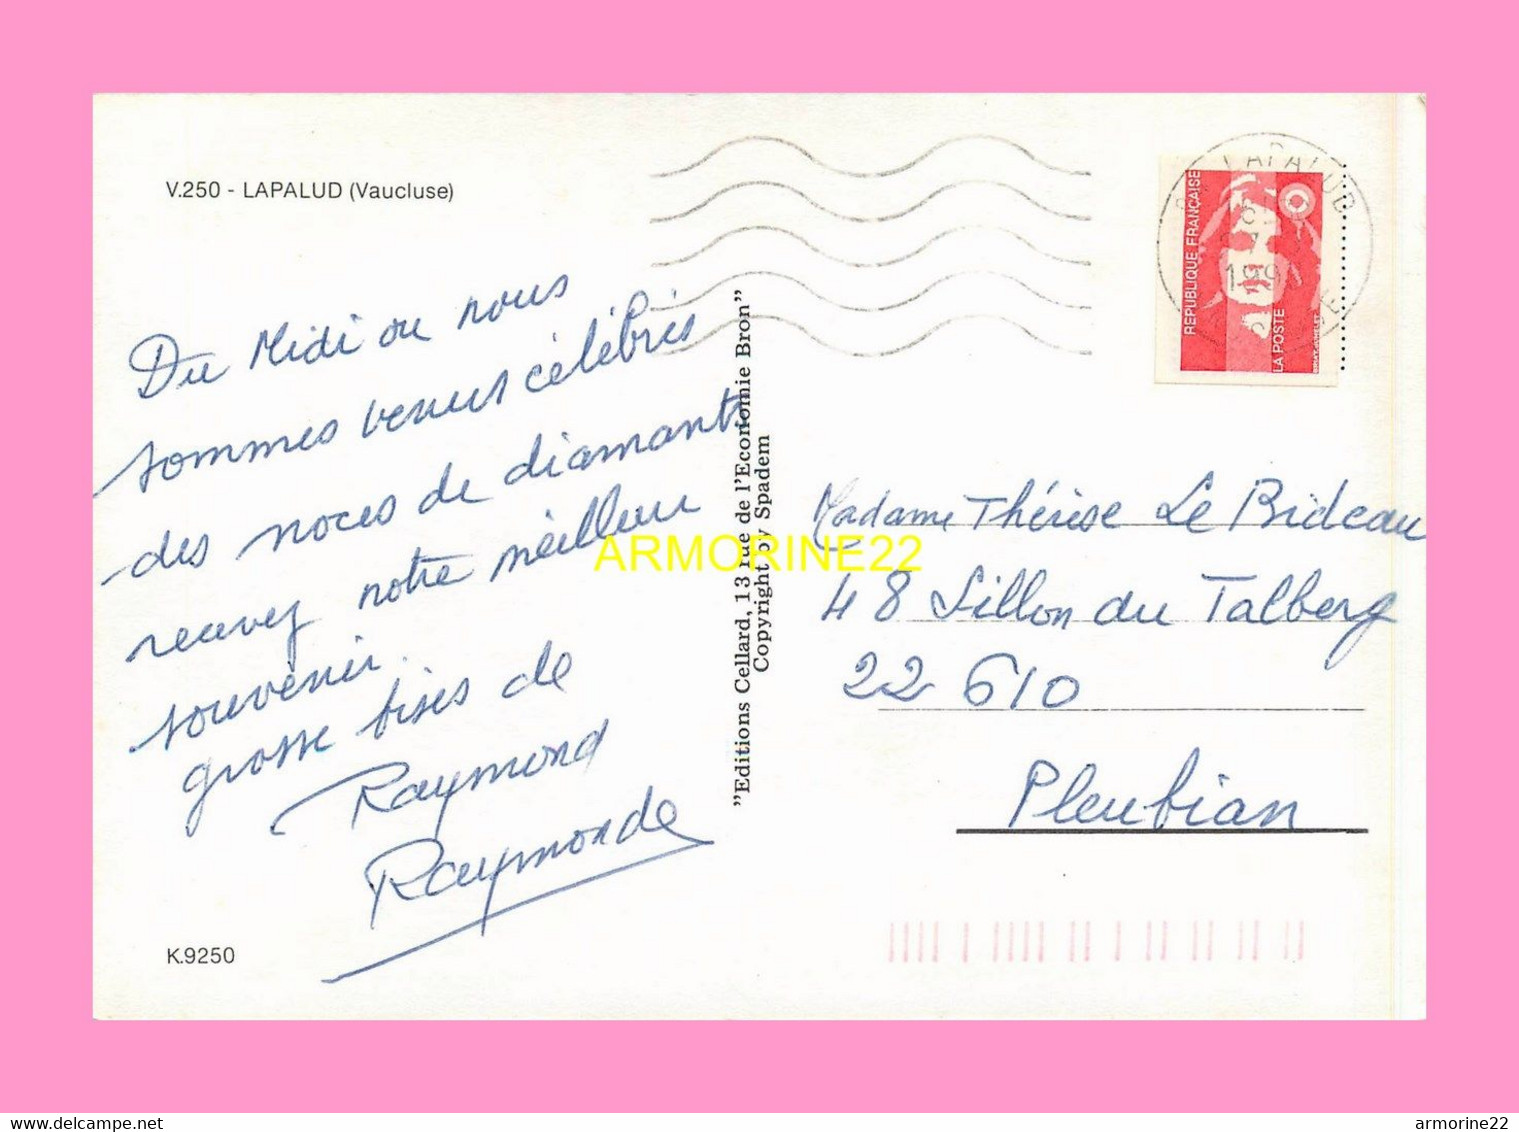 V.250 - LAPALUD (Vaucluse)
Du Midi ou nous
sommes venus célébrés
des noces de diamants
recevez notre meilleur
souvenir.
grosse bises de
Raymond
Raymonde
K.9250
"Editions Cellard, 13 rue de l'Economie Bron"
Copyright by Spadem
LAPALUD
199
REPUBLIQUE FRANÇAISE
LA POSTE
Madame Thérèse Le Bideau
48 Sillon du Talberg
22 610
Pleubian
ARMORINE22
delcampe.net
armorine22